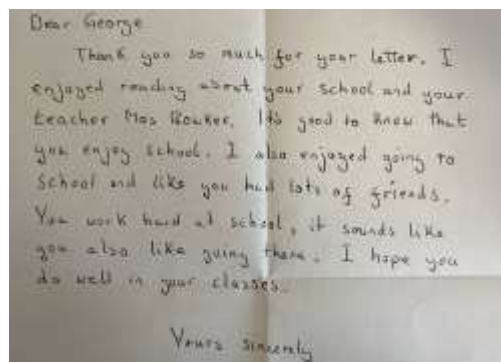 Dear George
Thank you so much for your letter. I
enjoyed reading about your school and your
teacher Mrs Bowker. It's good to know that
you enjoy school. I also enjoyed going to
school and like you had lots of friends.
You work hard at school, it sounds like
you also like going there. I hope you
do well in your classes.
Yours sincerely